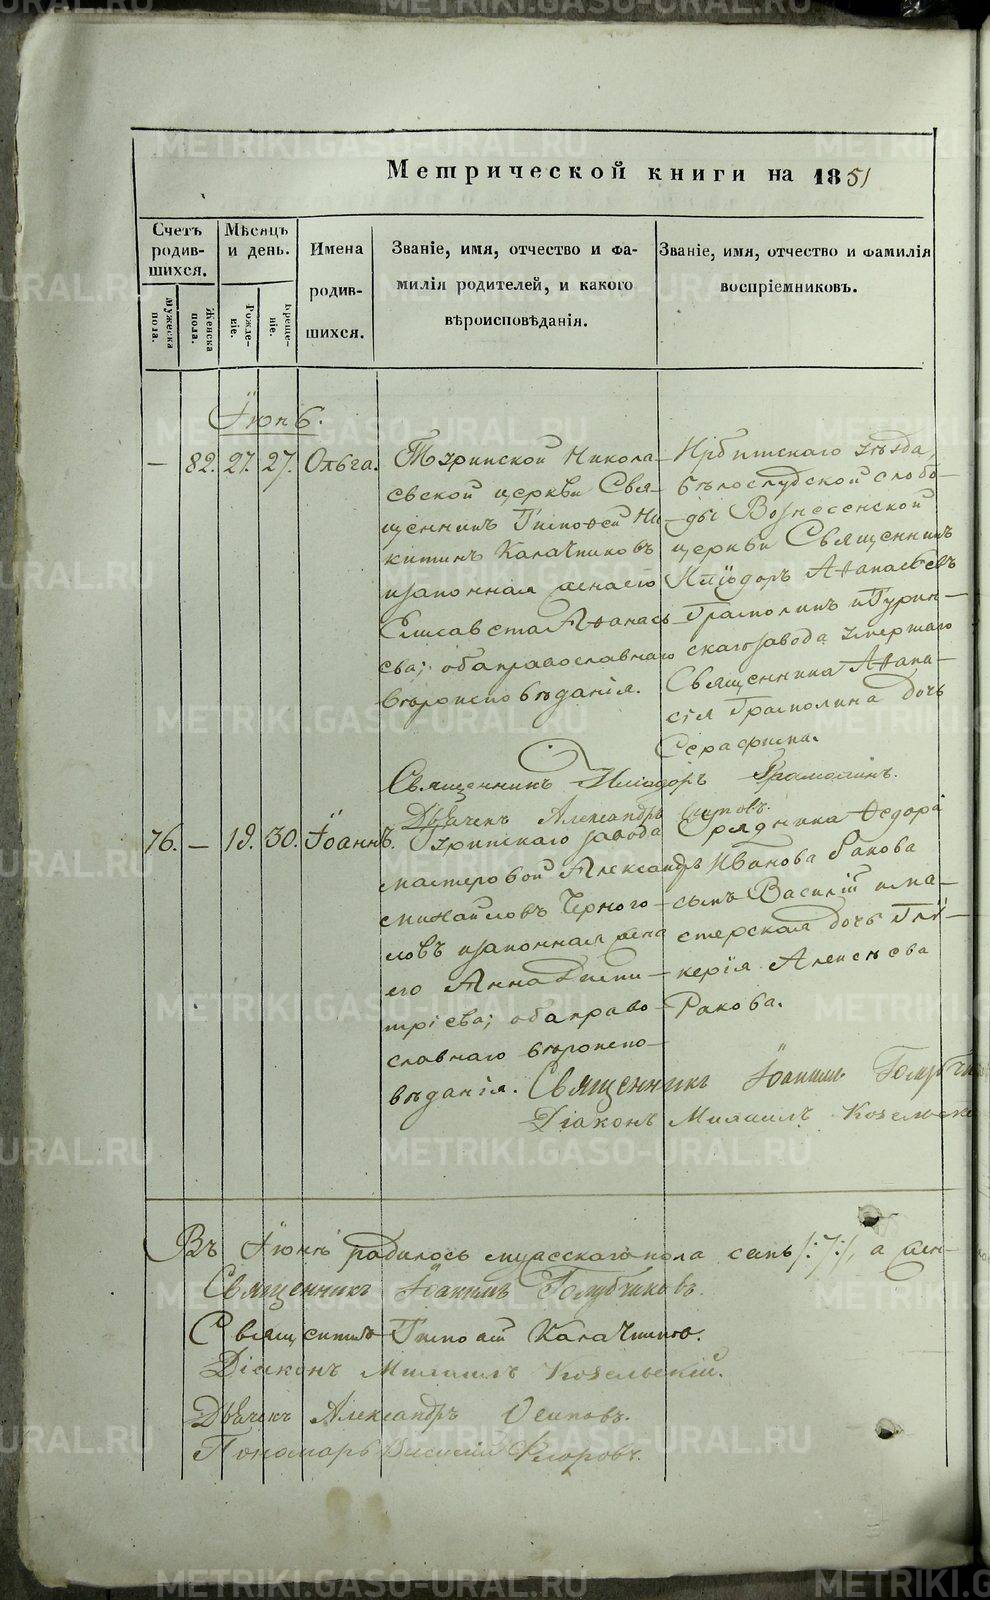 Метрической книги на 1851
Счетъ родившихся.
Мужеска пола.
Женска пола.
Мѣсяцъ и день.
Рождение.
Крещеніе.
Имена родившихся.
Званіе, имя, отчество и фамилія родителей, и какого вѣроисповѣданія.
Званіе, имя, отчество и фамилія воспріемниковъ.
Іюнь.
— 82. 27. 27. Ольга.
Туринской Никола-
евской церкви Свя-
щенникъ Тимофей Ни-
китинъ Калачниковъ
и законная жена его
Елисавета Афанась-
ева; оба православнаго
вѣроисповѣданія.
Ирбитскаго уѣзда,
Бѣлослудской слобо-
ды Вознесенской
церкви Священникъ
Иліодоръ Афанасьевъ
Грамолинъ и Турин-
скаго завода умершаго
Священника Афана-
сія Грамолина дочь
Серафима.
Священникъ Иліодоръ Грамолинъ.
Дьячекъ Александръ
76. — 19. 30. Іоаннъ.
Туринскаго завода
мастеровой Александръ
Михайловъ Черного-
ловъ и законная жена
его Анна Дими-
тріева; оба право-
славнаго вѣроиспо-
вѣданія.
Урядника Ѳедора
Иванова Ракова
сынъ Василій и ма-
стерская дочь Гли-
керія Алексѣева
Ракова.
Священникъ Іоакимъ
Діаконъ Михаилъ
Въ Іюнѣ родилось мужескаго пола семь /:7:/, а жен-
Священникъ Іоакимъ Голубчиковъ.
Священникъ Тимофей Калачниковъ.
Діаконъ Михаилъ Козельскій.
Дьячекъ Александръ Осиповъ.
Пономарь Василій Флоровъ.
METRIKI.GASO-URAL.RU